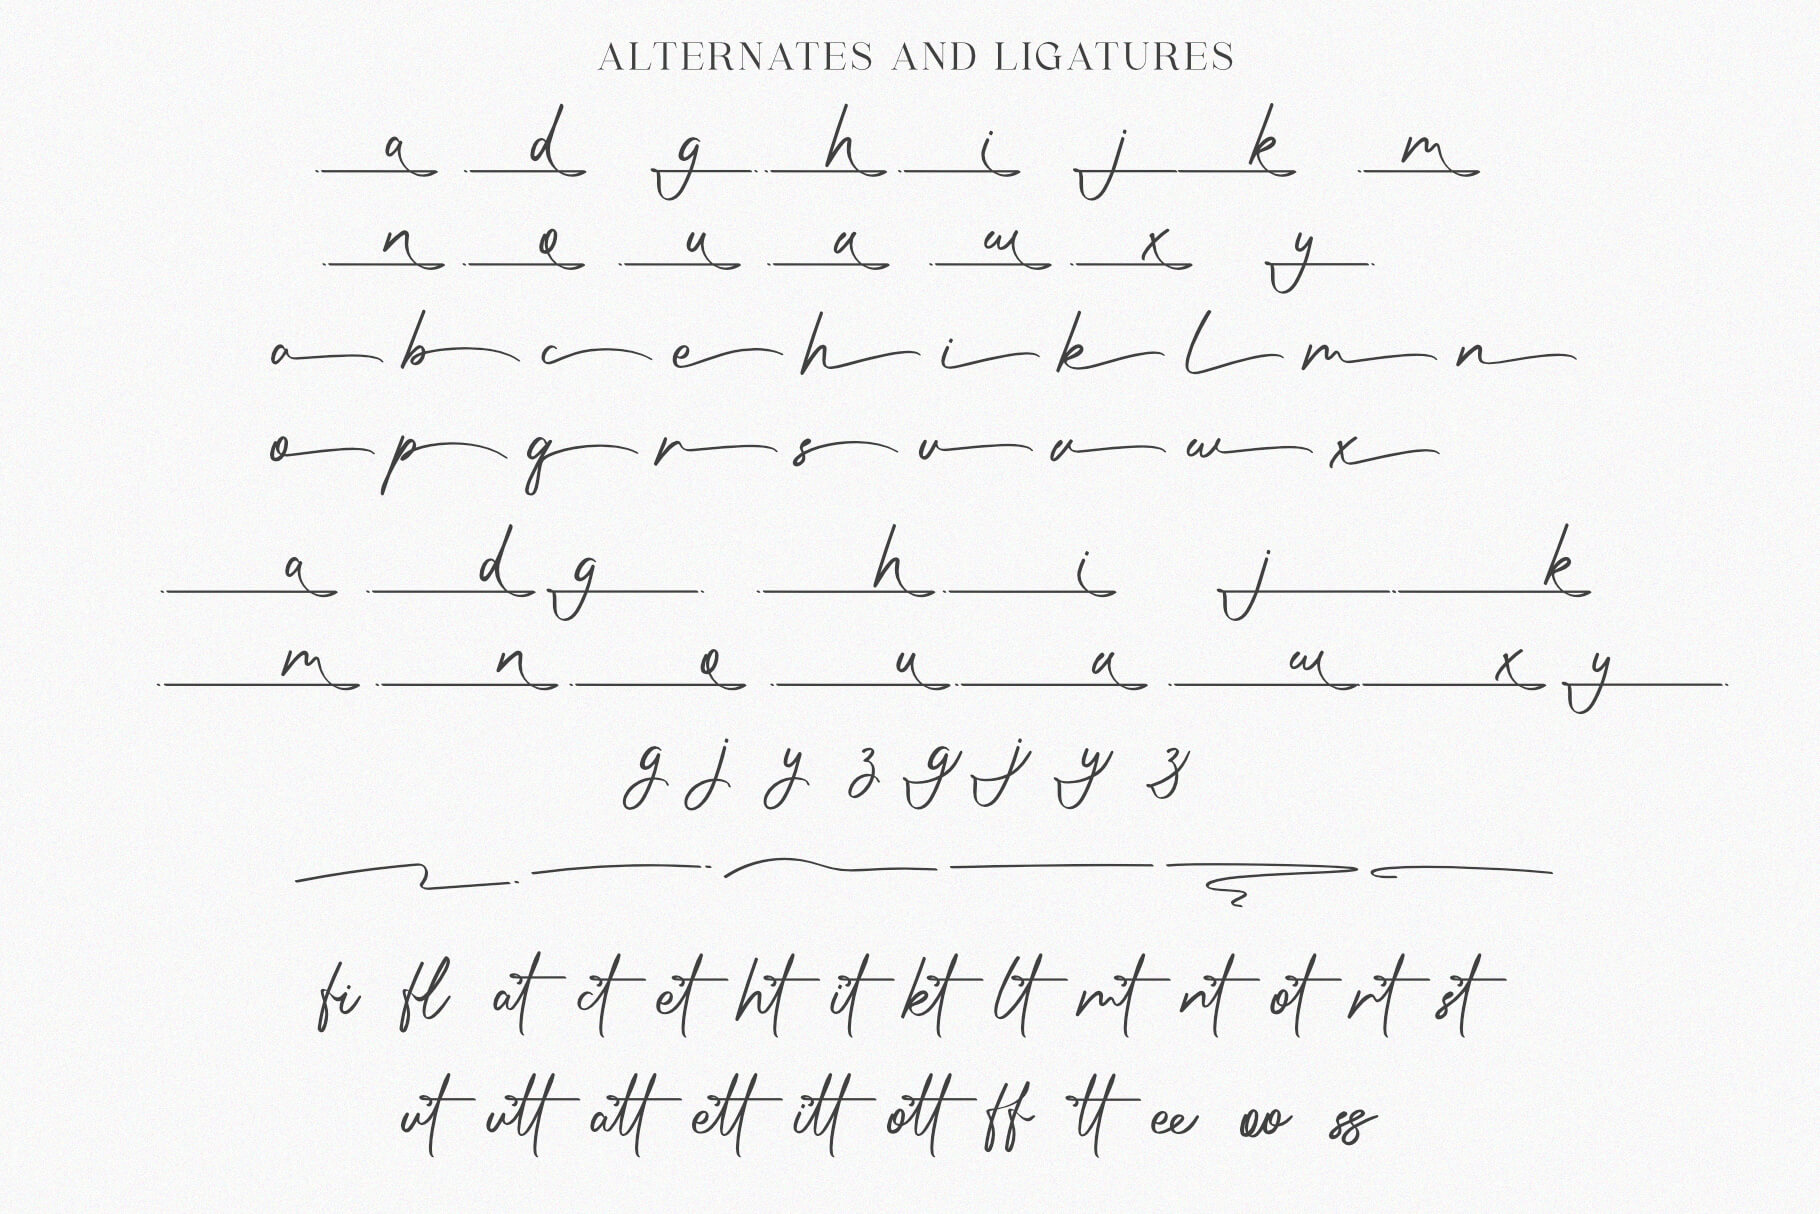 ALTERNATES AND LIGATURES
a d g h i j k m
n o u a w x y
a b c e h i k l m n
o p g r s v a w x
a d g h i j k
m n o u a w x y
g j y z g j y z
fi fl at ct et ht it kt lt mt nt ot rt st
ut utt att ett itt ott ff tt ee oo ss